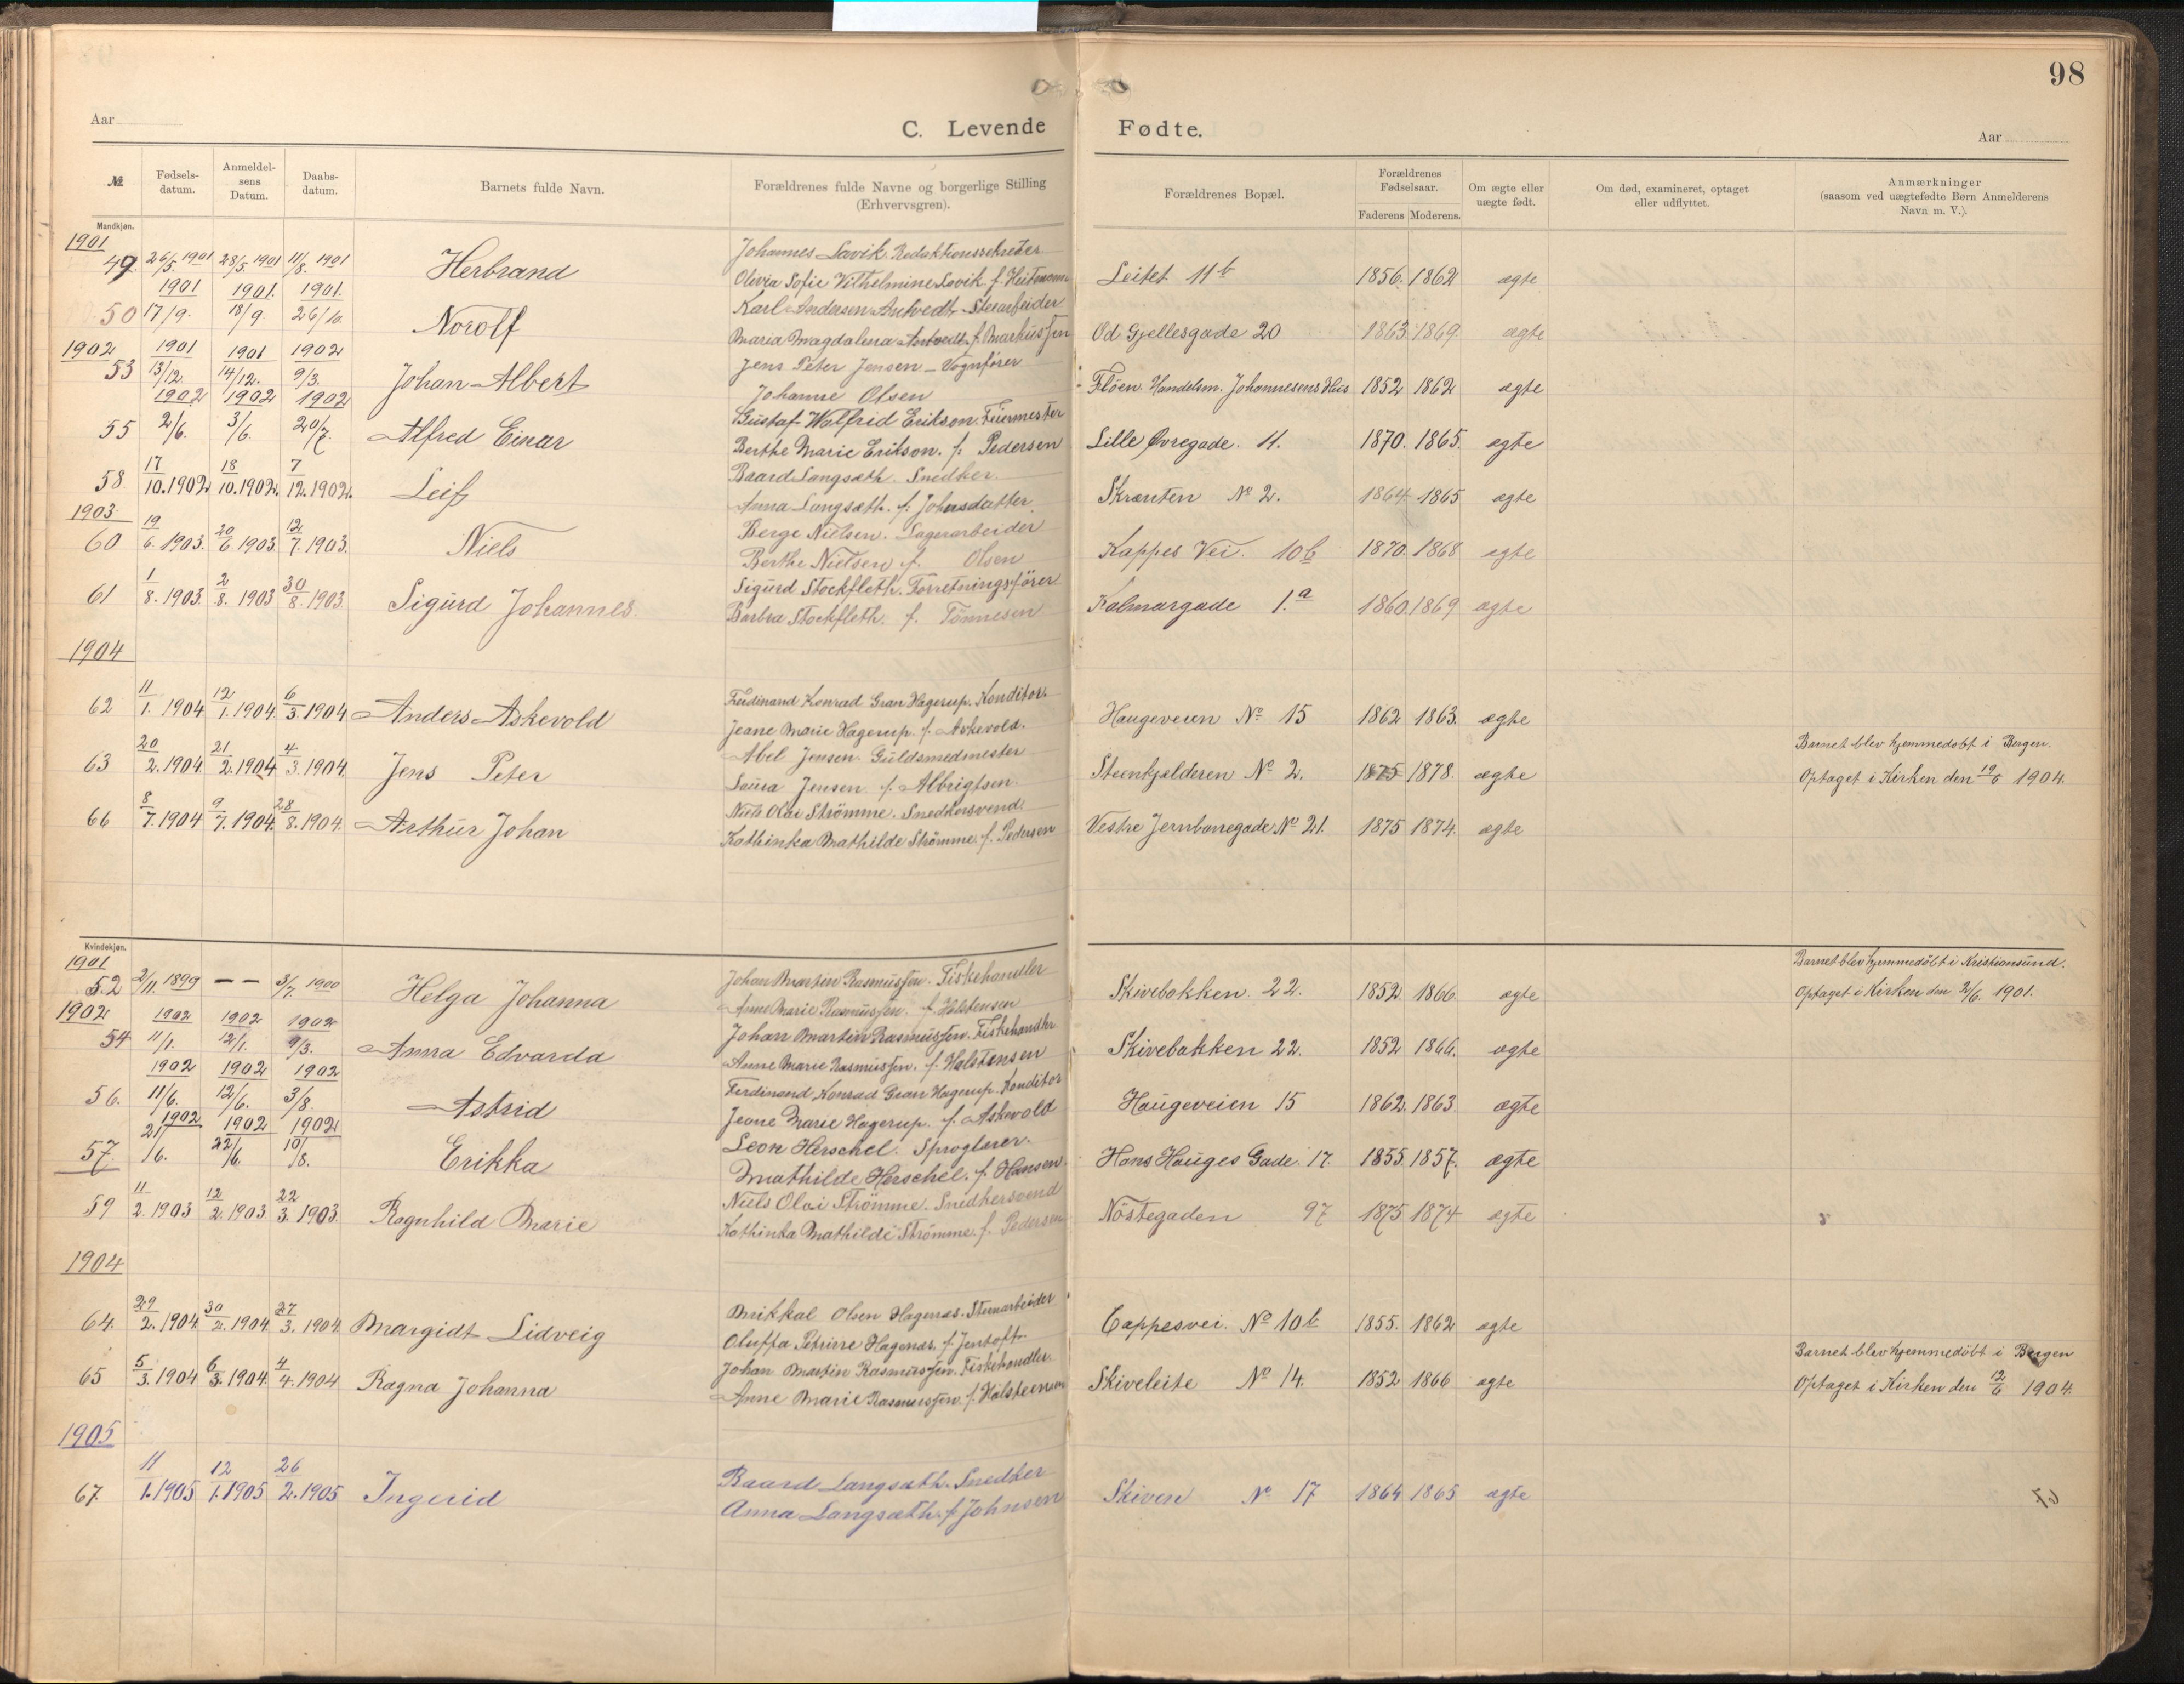 98
Aar
C. Levende Fødte.
Aar
№
Fødsels-datum.
Anmeldel-sens Datum.
Daabs-datum.
Barnets fulde Navn.
Forældrenes fulde Navne og borgerlige Stilling (Erhvervsgren).
Forældrenes Bopæl.
Forældrenes Fødselsaar.
Faderens Moderens.
Om ægte eller uægte født.
Om død, examineret, optaget eller udflyttet.
Anmærkninger (saasom ved uægtefødte Børn Anmelderens Navn m. V.).
Mandkjøn.
1901
49. 26/5. 1901 28/5 1901 11/8. 1901 Herbrand Johannes Lavik. Redaktionssekretær Leitet 11b 1856. 1862 ægte
Olivia Sofie Vilhelmine Lavik f.
1901 1901. 1901.
50 17/9. 18/9. 26/10. Norolf Karl Andersen Stenarbeider Od Gjellesgade 20 1863. 1869. ægte
Maria Magdalena f. Markussen
1902 1901 1901 1902
53 13/12. 14/12. 9/3. Johan Albert Jens Peter Jensen - Vognfører Fløen. Handelsm. Johannesens Hus 1852 1862 ægte
Johanne Olsen
1902 1902 1902
55 2/6. 3/6. 20/7. Alfred Einar Gustaf Walfrid Erikson. Feiermester Lille Øvregade. 11. 1870. 1865. ægte
Berthe Marie Erikson. f. Pedersen
58. 17/10. 1902 18/10. 1902. 7/12. 1902. Leif Baard Langsæth. Snedker. Skrænten № 2. 1864 1865 ægte
Anna Langsæth. f. Johnsdatter.
1903
60 19/6. 1903. 20/6 1903. 12/7. 1903. Niels Berge Nielsen. Lagerarbeider Kappes Vei. 10b 1870. 1868 ægte
Berthe Nielsen f. Olsen
61 1/8. 1903. 2/8. 1903 30/8. 1903. Sigurd Johannes. Sigurd Stockfleth. Forretningsfører Kalmargade 1.a 1860. 1869 ægte
Barbra Stockfleth. f. Tønnesen
1904
62 11/1. 1904 12/1. 1904 6/3. 1904 Anders Askevold Ferdinand Konrad Gran Hagerup. Konditor. Haugeveien № 15 1862 1863. ægte
Jeane Marie Hagerup. f. Askevold.
63 20/2. 1904. 21/2. 1904 4/3. 1904. Jens Peter Abel Jensen. Guldsmedmester Steenkjælderen № 2. 1875 1878. ægte Barnet blev hjemmedøbt i Bergen.
Laura Jensen f. Albrigtsen. Optaget i Kirken den 19/6 1904.
66 8/7. 1904 9/7. 1904. 28/8. 1904. Arthur Johan Niels Olai Strömme. Snedkersvend. Vestre Jernbanegade № 21. 1875 1874. ægte
Kathinka Mathilde Strömme. f. Pedersen
Kvindekjøn.
1901
52 2/11. 1899 — — 3/7. 1900 Helga Johanna Johan Martin Rasmussen. Fiskehandler Skivebakken. 22. 1852. 1866. ægte Barnet blev hjemmedøbt i Kristiansund.
Anne Marie Rasmussen. f. Halstensen Optaget i Kirken den 2/6. 1901.
1902 1902 1902 1902
54 11/1. 12/1. 9/3. Anna Edvarda Johan Martin Rasmussen. Fiskehandler Skivebakken 22. 1852 1866. ægte
Anne Marie Rasmussen. f. Halstensen
1902 1902 1902
56. 11/6. 12/6. 3/8. Astrid Ferdinand Konrad Gran Hagerup. Konditor Haugeveien 15 1862. 1863. ægte
Jeane Marie Hagerup. f. Askevold
1902 1902 1902
57. 21/6. 22/6. 10/8. Erikka Leon Herschel. Sproglærer. Hans Hauges Gade. 17. 1855. 1857. ægte
Mathilde Herschel. f. Hansen.
59 11/2. 1903 12/2. 1903 22/3. 1903. Ragnhild Marie Niels Olai Strömme. Snedkersvend Nöstegaden 97 1875 1874 ægte
Kathinka Mathilde Strömme. f. Pedersen
1904
64. 29/2. 1904 30/2. 1904. 27/3. 1904. Margidt Lidveig Mikkal Olsen Hagenæs. Stenarbeider Cappesvei. № 10b 1855. 1862 ægte
Oluffa Petrine Hagenæs. f. Jentoft.
65 5/3. 1904 6/3. 1904. 4/4. 1904 Ragna Johanna Johan Martin Rasmussen. Fiskehandler. Skiveleite № 14. 1852 1866 ægte Barnet blev hjemmedöbt i Bergen
Anne Marie Rasmussen f. Halsteensen Optaget i Kirken den 12/6 1904.
1905
67. 11/1. 1905 12/1. 1905 26/2. 1905 Ingerid Baard Langsæth. Snedker Skiven № 17 1864 1865 ægte
Anna Langsæth. f. Johnsen